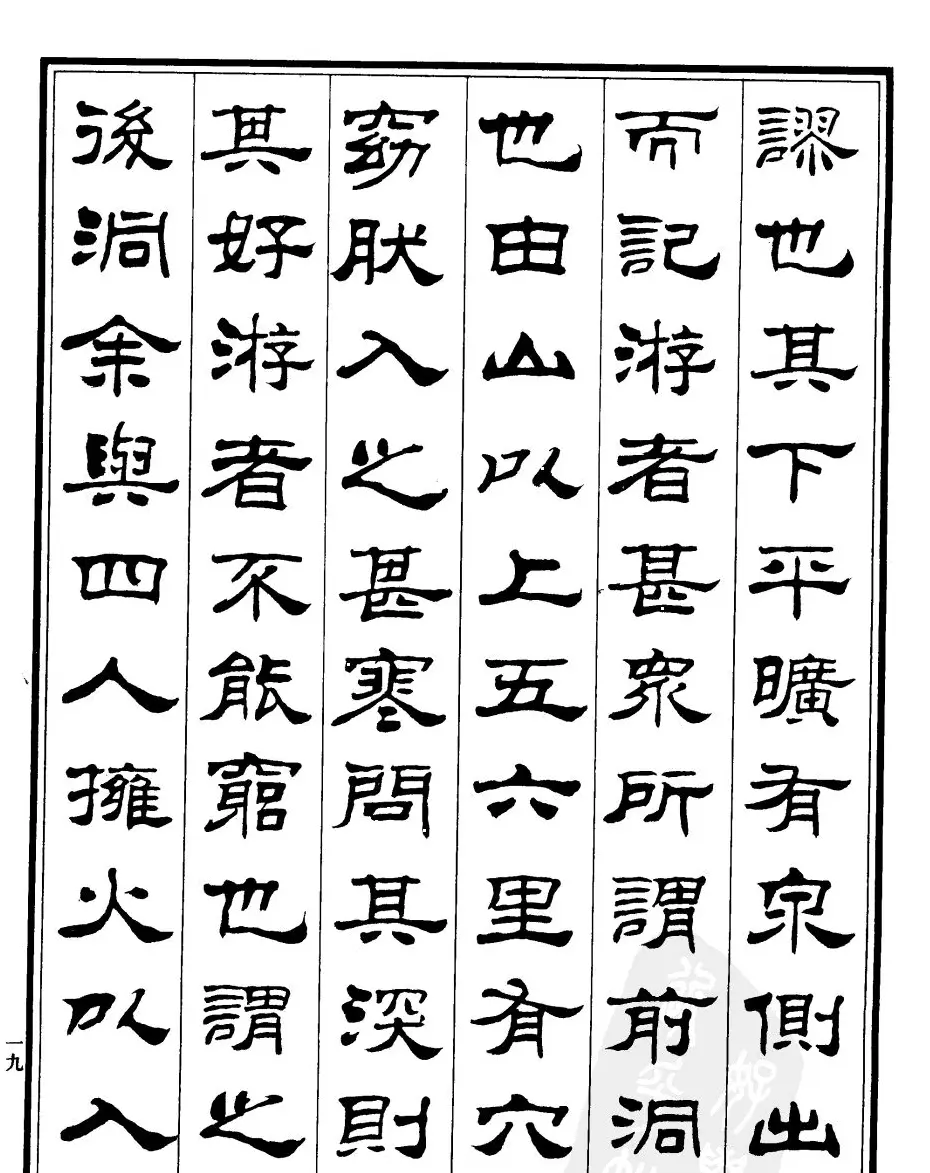 謬也其下平曠有泉側出
而記游者甚衆所謂前洞
也由山以上五六里有穴
窈肰入之甚寒問其深則
其好游者不能窮也謂之
後洞余與四人擁火以入
一九